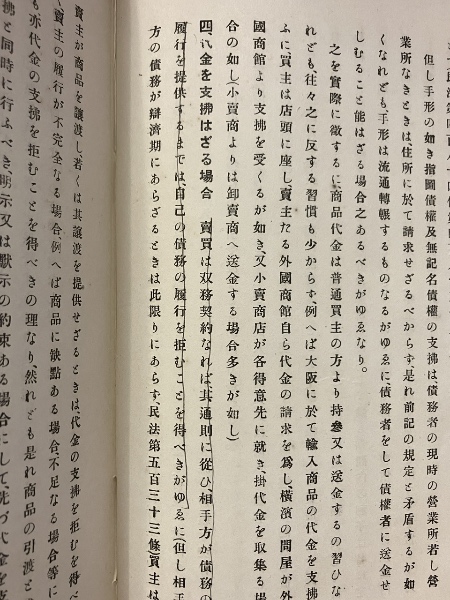 但し手形の如き指圖債權及無記名債權の支拂は、債務者の現時の營業所若し營
業所なきときは、住所に於て請求せざるべからず、是れ前記の規定と矛盾するが如
くなれども、手形は流通轉帳するものなるがゆゑに、債務者をして債權者に送金せ
しむること能はざる場合之あるべきがゆゑなり。
之を實際に徵するに、商品代金は普通買主の方より持參又は送金するの習ひな
れども往々之に反する習慣も少からず、例へば大阪に於て輸入商品の代金を支拂
ふに、買主は店頭に座し、賣主たる外國商館自ら代金の請求を爲し、橫濱の問屋が外
國商館より支拂を受くるが如き、又小賣商店が各得意先に就き、掛代金を取集る場
合の如し(小賣商よりは卸賣商へ送金する場合多きが如し)
四、代金を支拂はざる場合 賣買は双務契約なれば、其通則に從ひ相手方が債務の
履行を提供するまでは、自己の債務の履行を拒むことを得べきがゆゑに(但し相手
方の債務が辯濟期にあらざるときは此限りにあらず、民法第五百三十三條)買主は
賣主が商品を讓渡し若くは其讓渡を提供せざるときは、代金の支拂を拒むを得べ
く、賣主の履行が不完全なる場合例へば商品に缺點ある場合、不足なる場合等に
も亦代金の支拂を拒むことを得べきの理なり、然れども是れ商品の引渡と
拂と同時に行ふべき、明示又は默示の約束ある場合にして、先づ代金を支